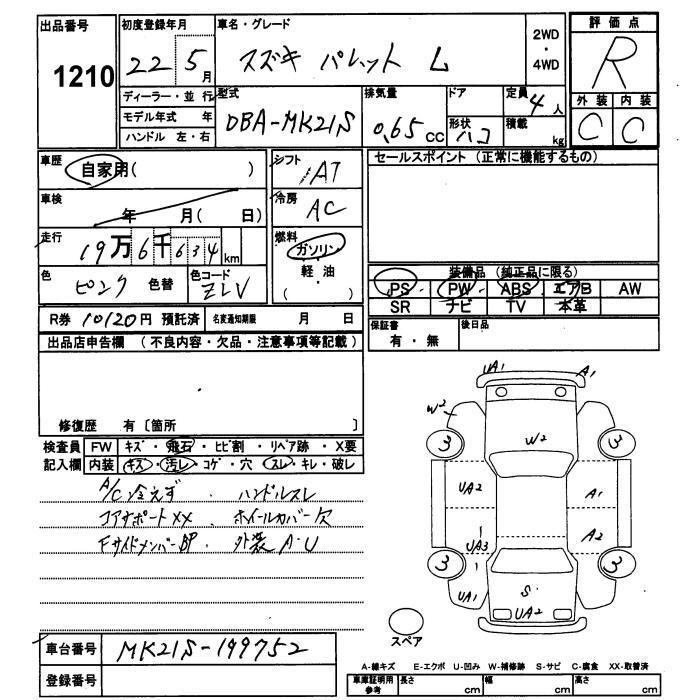 出品番号 初度登録年月 車名・グレード 2WD ・ 4WD 評価点
1210 22 5月 スズキ パレット L R
ディーラー・並行 型式 排気量 ドア 定員 4人 外装 内装
モデル年式 年 DBA-MK21S 0.65 CC 形状 ハコ 積載 kg C C
ハンドル 左・右
車歴 自家用( ) シフト AT セールスポイント(正常に機能するもの)
車検 年 月( 日) 冷房 AC
走行 19万6千634km 燃料 ガソリン
色 ピンク 色替 色コード ZLV 軽・油 ( ) 装備品(純正品に限る)
PS PW ABS エアB AW
R券 10120円 預託済 名変通知期限 月 日 SR ナビ TV 本革
出品店申告欄(不良内容・欠品・注意事項等記載) 保証書 有・無 後日品
修復歴 有〔箇所 〕
検査員 FW キズ・飛石・ヒビ割・リペア跡・X要
記入欄 内装 キズ・汚レ・コゲ・穴 スレ・キレ・破レ
A/C冷えず・ハンドルスレ
コアサポートXX・ホイールカバー欠
FサイドメンバーBP・外装A・U
UA1 A1
W2
3 W2 3
UA2 A1
UA3 A2
3 3
UA1 S UA2
スペア
車台番号 MK21S-199752
登録番号
A-線キズ E-エクボ U-凹み W-補修跡 S-サビ C-腐食 XX-取替済
車庫証明用参考 長さ cm 幅 cm 高さ cm